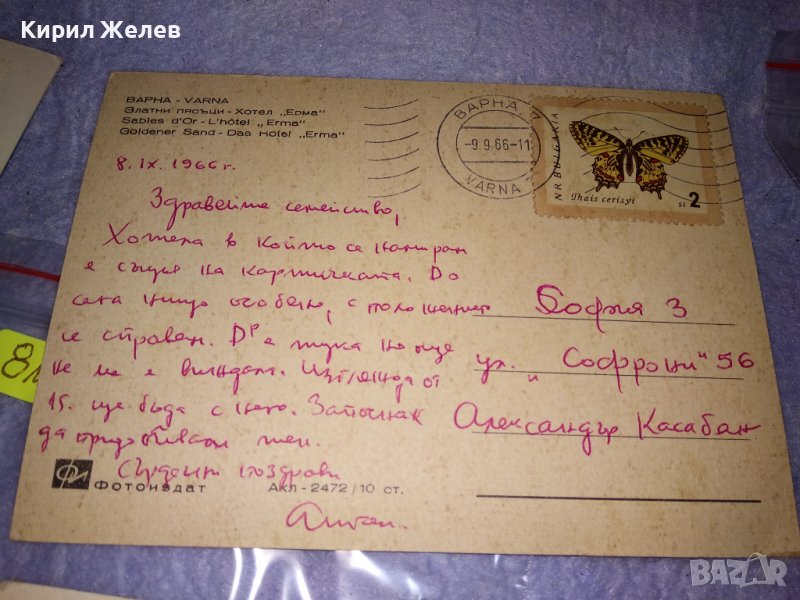 Кирил Желев
ВАРНА - VARNA
Златни пясъци - Хотел „Ерма"
Sables d'Or - L'hôtel „Erma"
Goldener Sand - Das Hotel „Erma"
ВАРНА
-9.9.66-11
VARNA
NR BULGARIA
Thais cerisyi
ст 2
8.IX.1966г.
Здравейте семейство,
Хотела в който се намирам
е същия на картичката. До
сега нищо особено, с положението
се справям. Dr е тука но още
не ме е виждал. Изглежда от
15. ще бъда с него. Започнах
да
Сърдечни поздрави
София 3
ул. „Софроний" 56
Александър Касабан
ФОТОИЗДАТ
Акл-2472/10 ст.
BAZAR